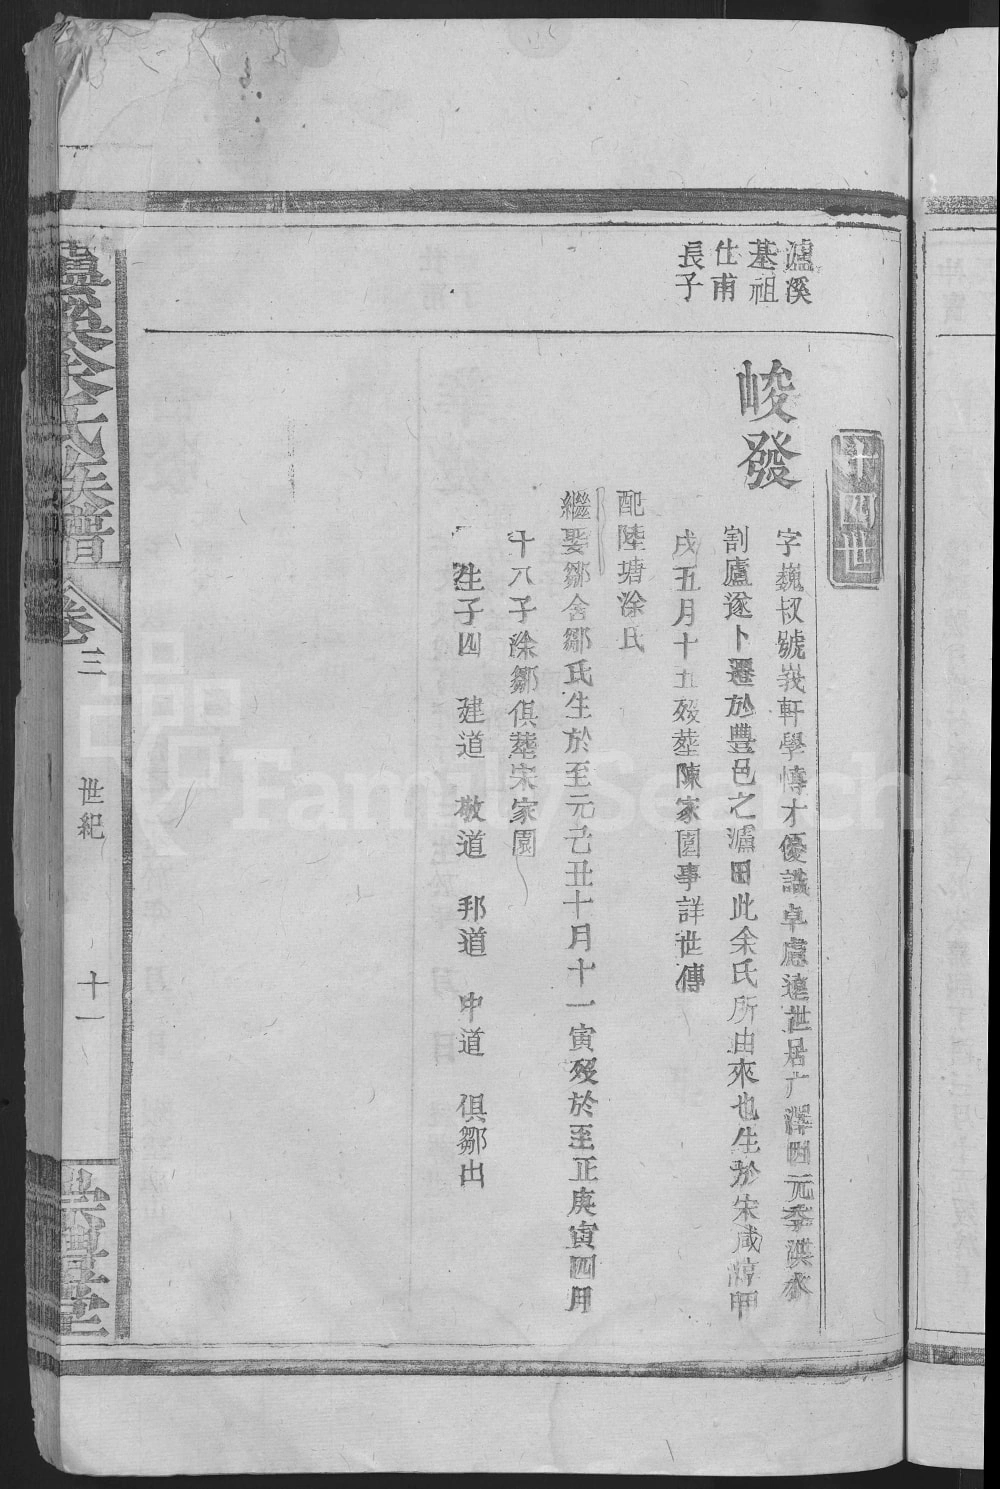 瀘溪
基祖
仕甫
長子
十四世
峻發
字巍叔號峩軒學博才優識卓慮遠世居廣澤因元季洪水
割廬遂卜遷於豊邑之瀘田此余氏所由來也生於宋咸淳甲
戌五月十五歿塟陳家園事詳世傳
配陸塘涂氏
繼娶鄒舍鄒氏生於至元己丑十月十一寅歿於至正庚寅四月
十八子涂鄒俱塟宋家園
生子四 建道 敬道 邦道 中道 俱鄒出
瀘溪余氏族譜
卷三
世紀
十一
FamilySearch